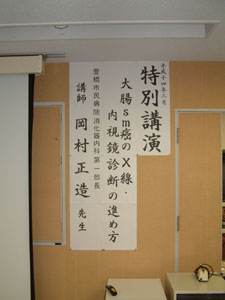 平成十四年三月
特別講演
大腸sm癌のX線・
内視鏡診断の進め方
豊橋市民病院消化器内科第一部長
講師 岡村正造 先生